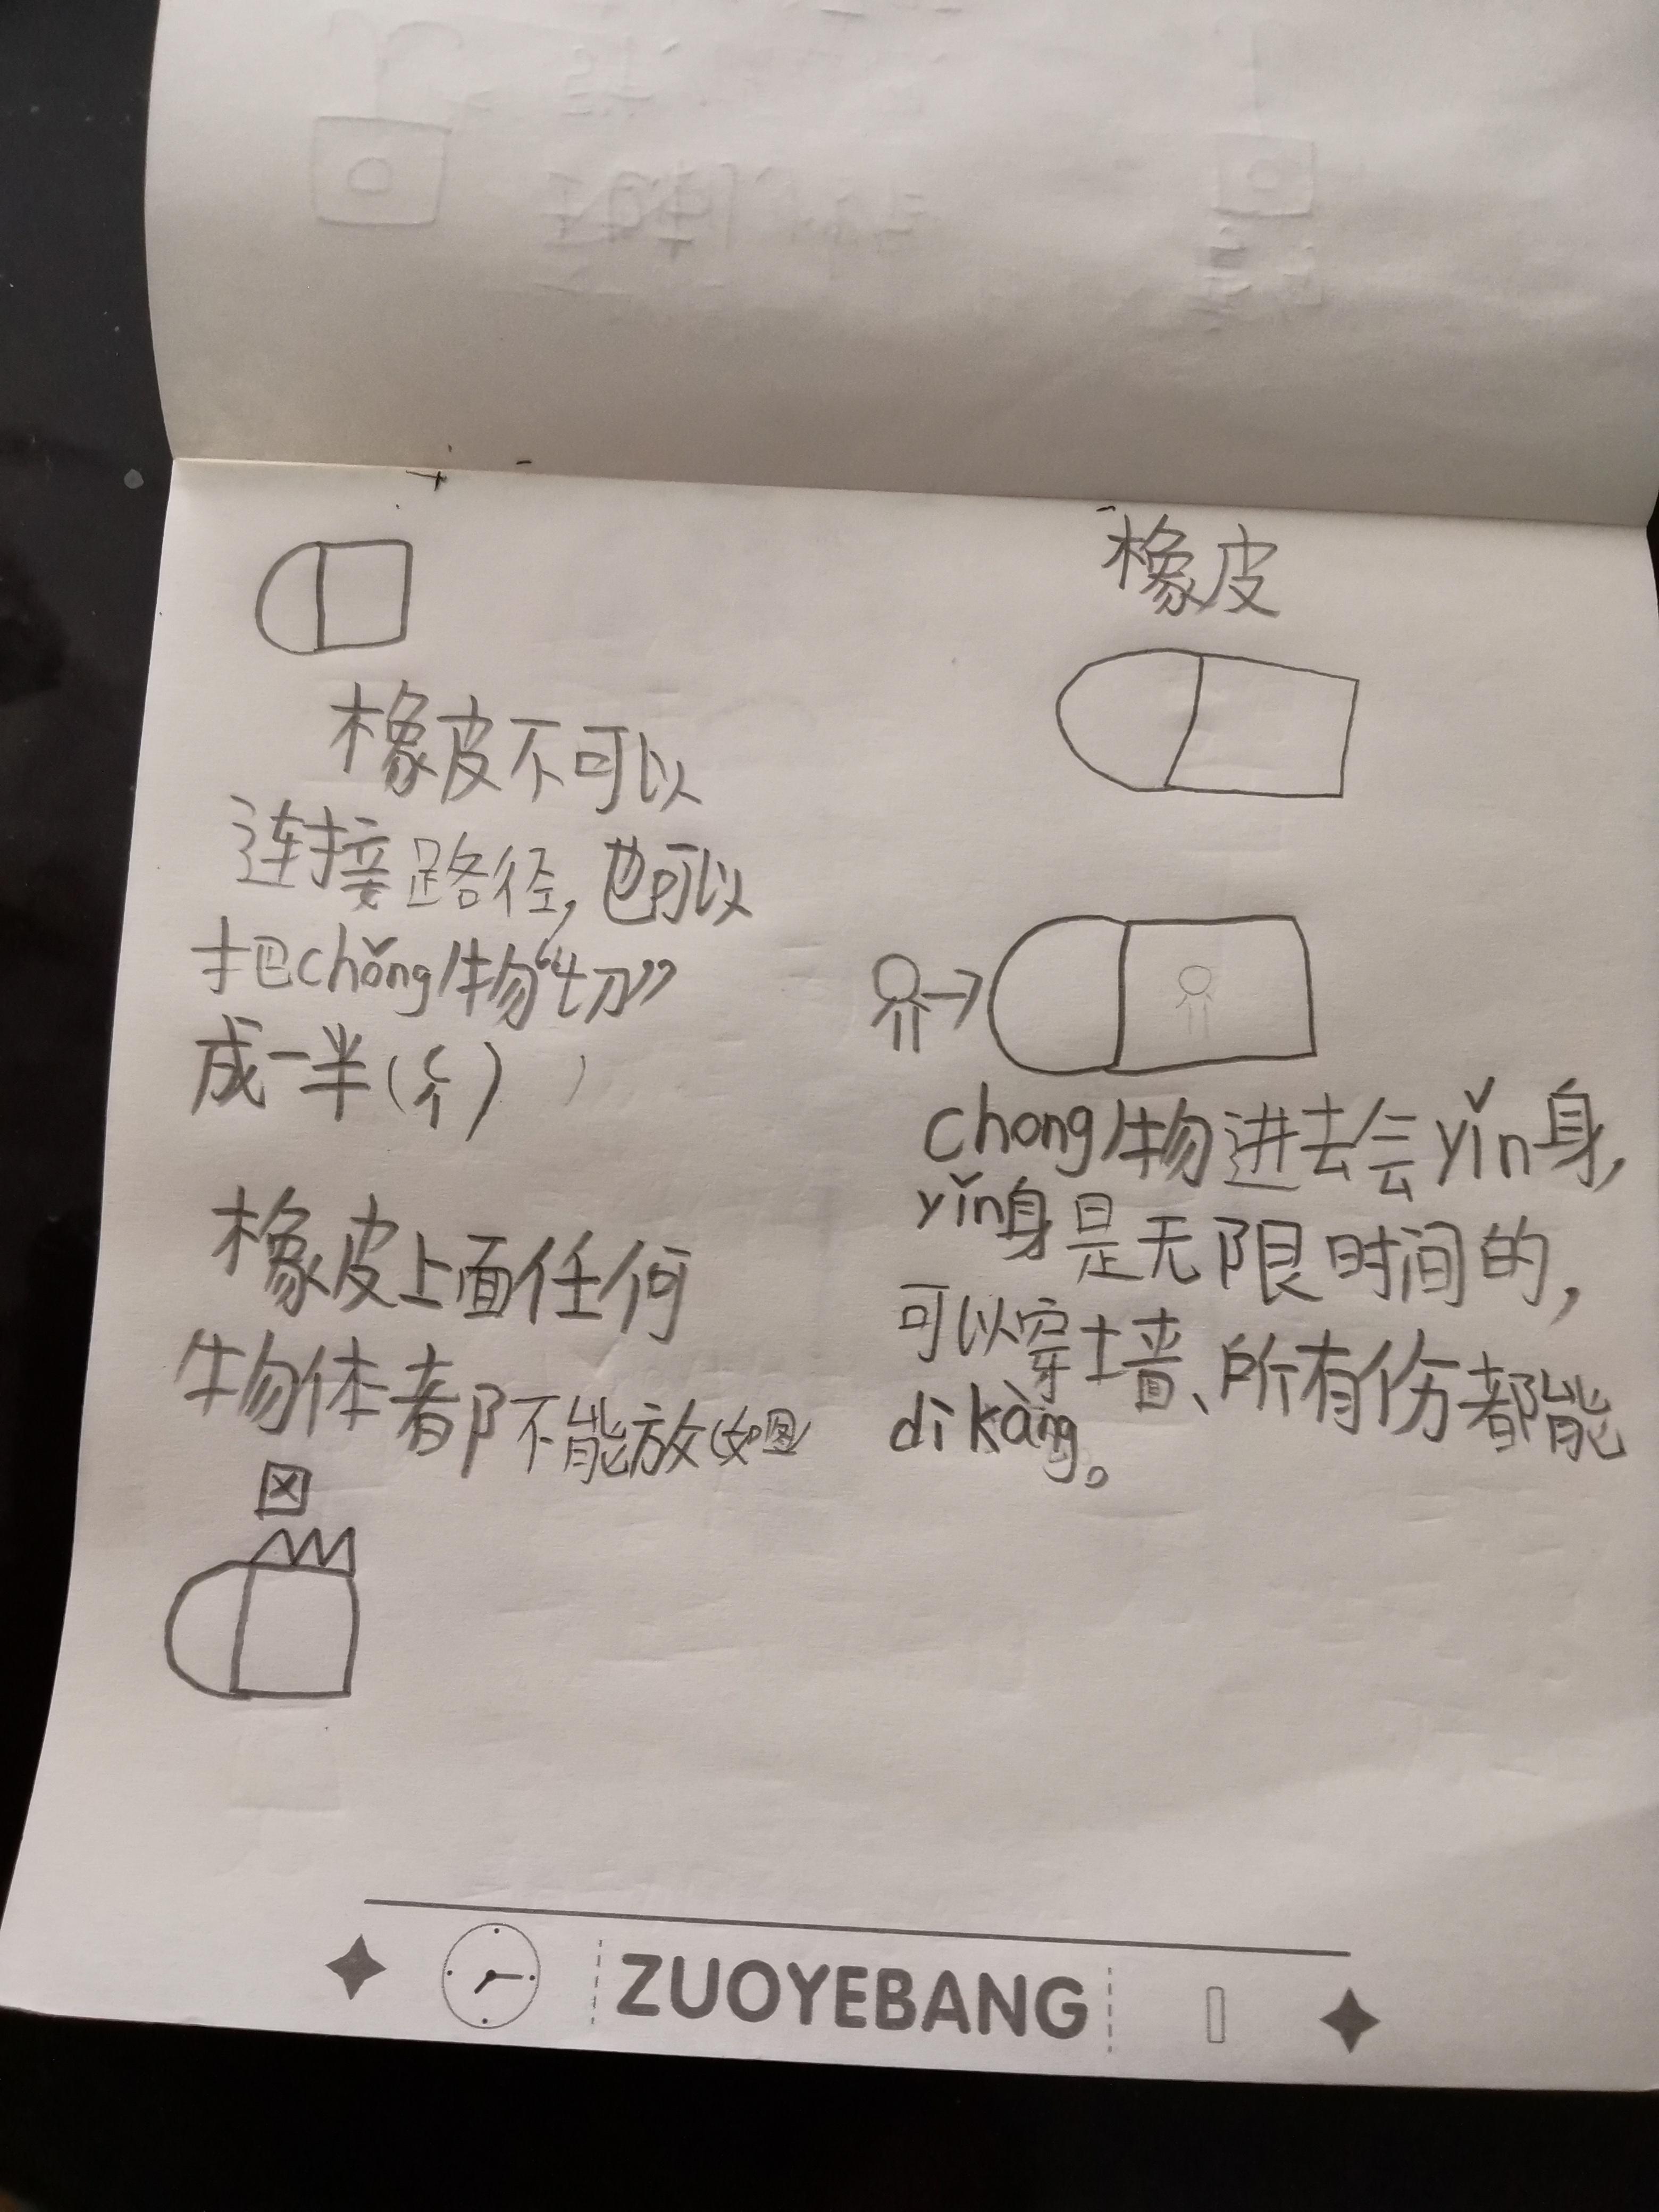 橡皮
chong物进去会yǐn身,
yǐn身是无限时间的,
可以穿墙、所有伤都能
dǐ kàng。
橡皮不可以
连接路径,也可以
把chǒng物“切”
成一半(个)
橡皮上面任何
物体都不能放(如图)
ZUOYEBANG